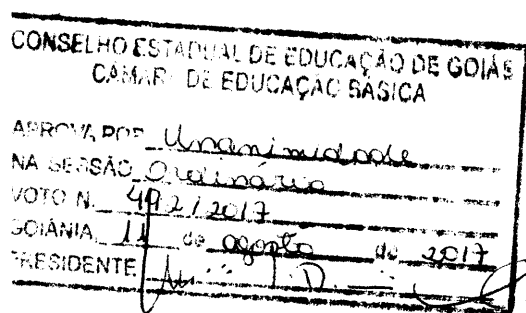 CONSELHO ESTADUAL DE EDUCAÇÃO DE GOIÁS
CÂMARA DE EDUCAÇÃO BÁSICA
APROVA POR Unanimidade
NA SESSÃO Ordinária
VOTO N. 492/2017
GOIÂNIA, 11 de agosto de 2017
PRESIDENTE